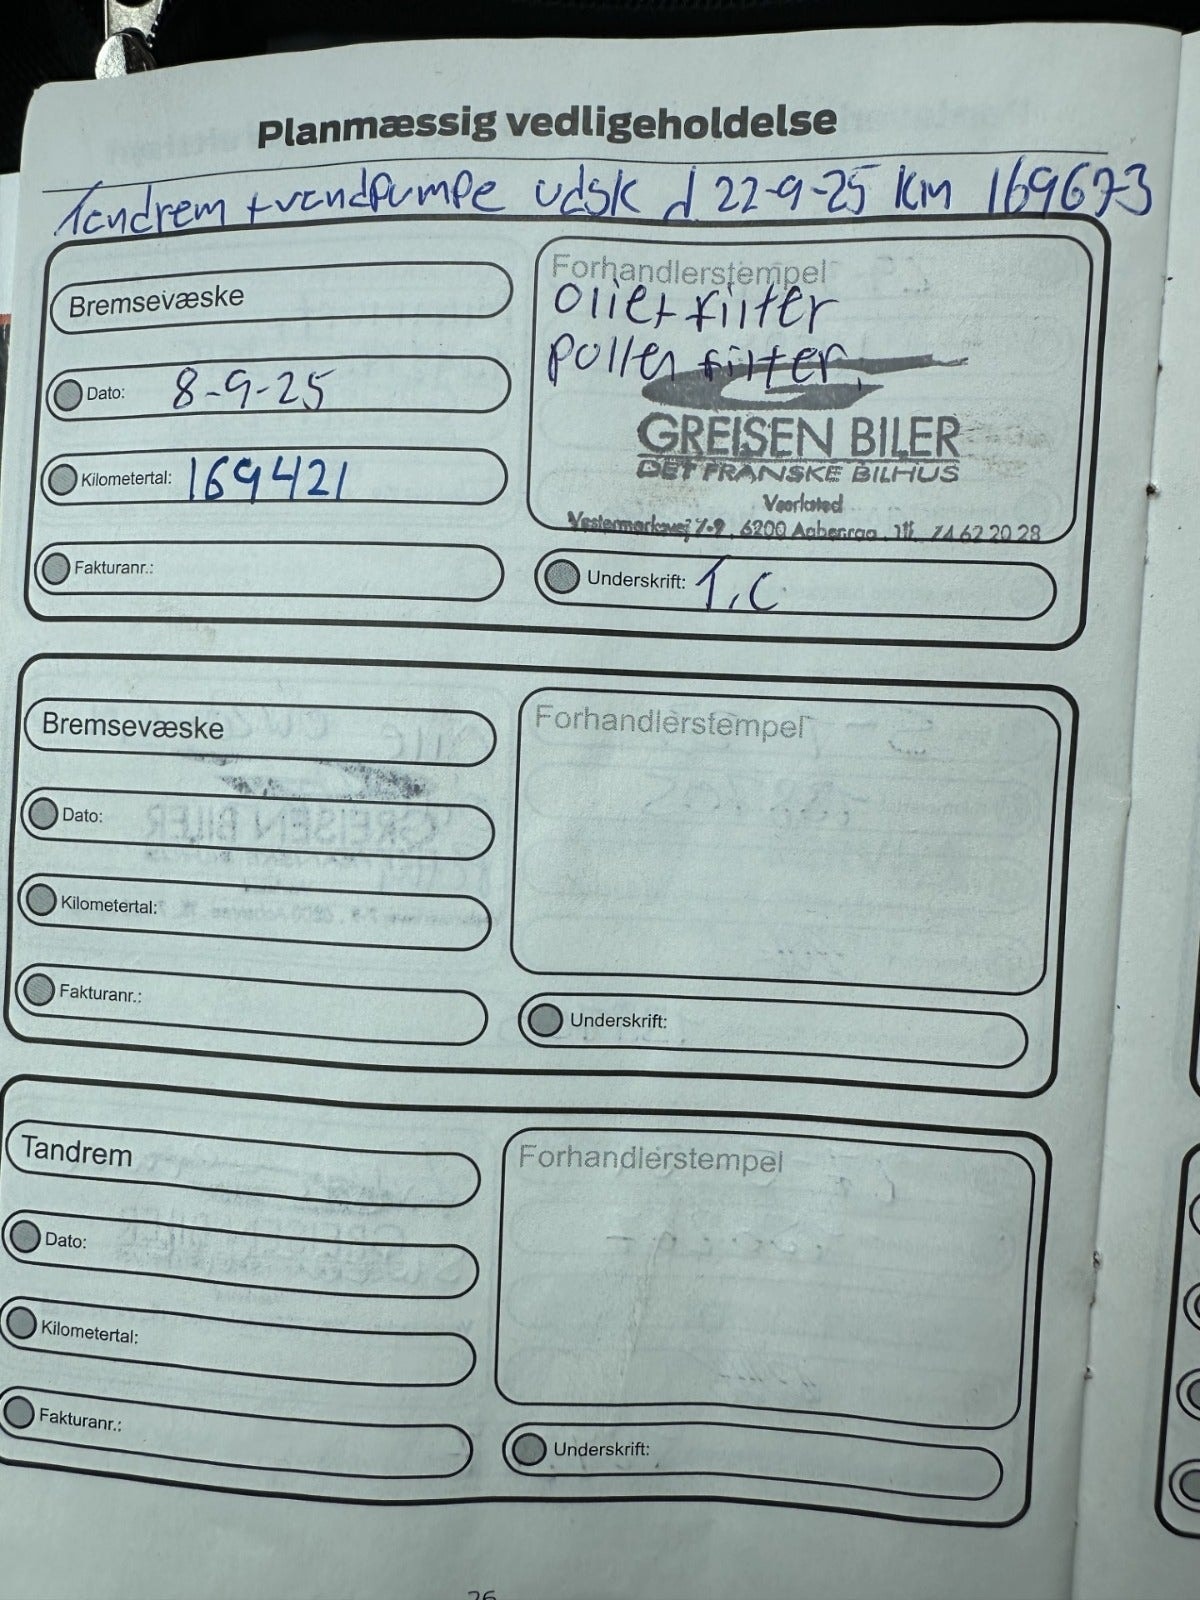 Planmæssig vedligeholdelse
Tandrem + vandpumpe udsk d 22-9-25 Km 169673
Bremsevæske
Dato: 8-9-25
Kilometertal: 169421
Fakturanr.:
Forhandlerstempel
Olie + filter
pollen filter.
GREISEN BILER
DET FRANSKE BILHUS
Værksted
Vestermarksvej 7-9 . 6200 Aabenraa . Tlf. 74 62 20 28
Underskrift: T.C
Bremsevæske
Dato:
Kilometertal:
Fakturanr.:
Forhandlerstempel
Underskrift:
Tandrem
Dato:
Kilometertal:
Fakturanr.:
Forhandlerstempel
Underskrift: